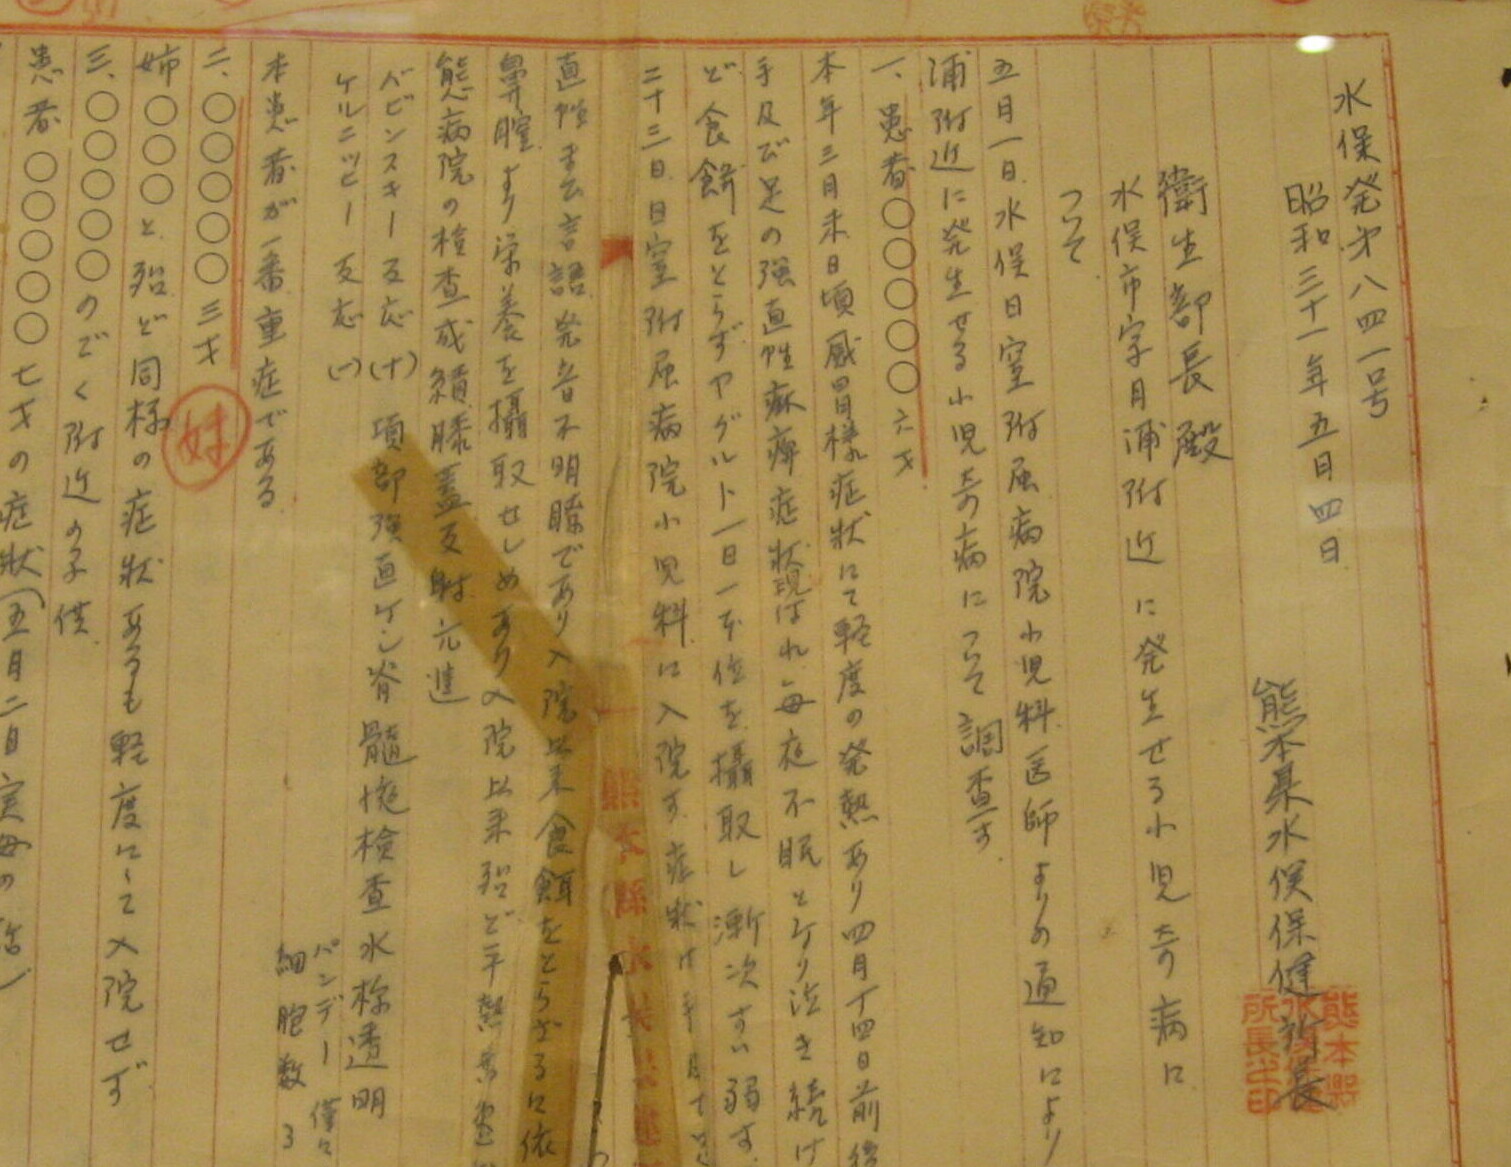 水保発才八四一号
昭和三十一年五月四日
熊本县水俣保健所長
衛生部長殿
水俣市字月浦附近に発生せる小児奇病に
ついて
五月一日水俣日窒附属病院小児科医師よりの通知により
浦附近に発生せる小児奇病について調査す
一、患者〇〇〇〇〇六才
本年三月末日頃感冒様症状にて軽度の発熱あり四月十四日前後
手及び足の強直性麻痺症状現はれ毎夜不眠となり泣き続け
ど食餌をとらずヤグルト一日一本位を攝取し漸次すい弱す
二十三日日窒附属病院小児科に入院す症状は手
直性まひ言語発音不明瞭であり入院以来食餌をとらざるに依
鼻腔より栄養を攝取せしめあり入院以来殆ど平熱
熊病院の検査成績膝蓋反射亢進
バビンスキー反応(十)項部强直ナシ脊髄液検査水様透明
ケルニッヒー反応(一)
パンデー僅々
細胞数3
本患者が一番重症である
二、〇〇〇〇三才
妹
姉〇〇〇と殆ど同様の症状あるも軽度にして入院せず
三、〇〇〇〇のごく附近の子供
患者〇〇〇〇七才の症状(五月二日実母の
熊本縣水